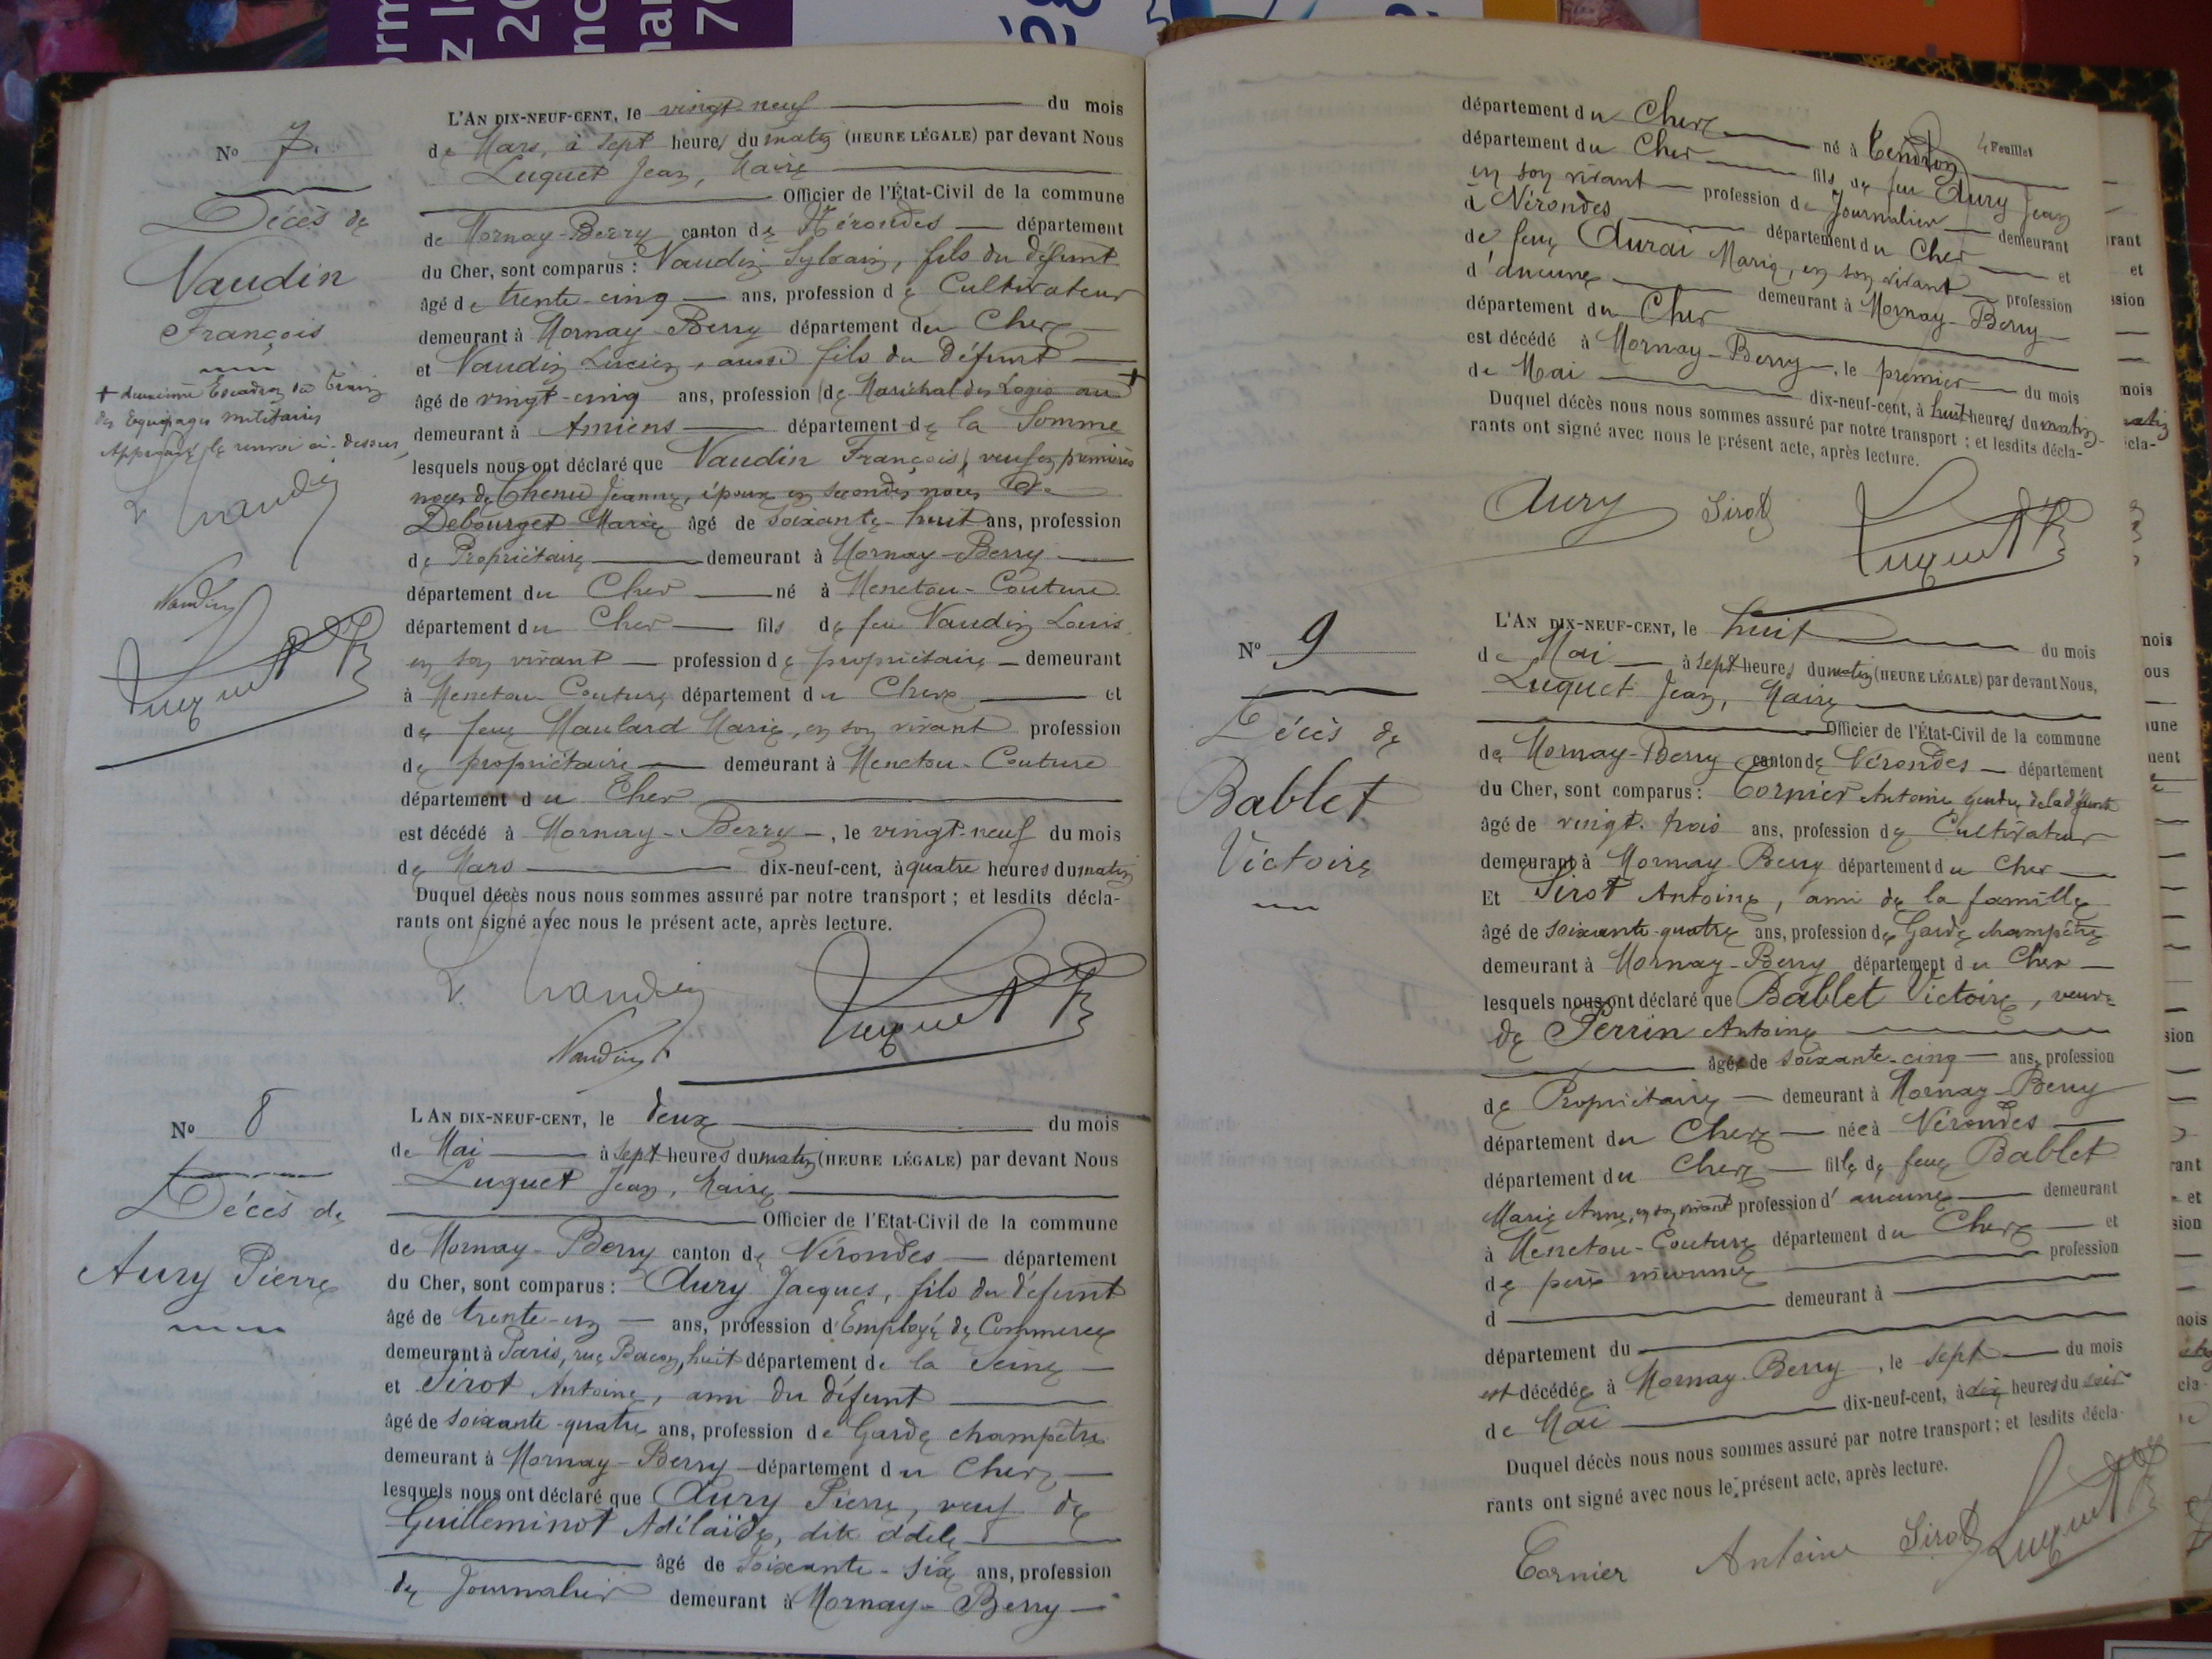 L'AN DIX-NEUF-CENT, le vingt-neuf du mois
de Mars, à sept heures du matin (HEURE LÉGALE) par devant Nous
Luquet Jean, Maire
Officier de l'État-Civil de la commune
de Mornay-Berry canton de Nérondes département
du Cher, sont comparus : Vaudin Sylvain, fils du défunt
âgé de trente-cinq ans, profession de Cultivateur
demeurant à Mornay-Berry département du Cher
et Vaudin Lucien, aussi fils du défunt
âgé de vingt-cinq ans, profession de Maréchal des Logis au +
demeurant à Amiens département de la Somme
lesquels nous ont déclaré que Vaudin François, veuf en premières
noces de Chenu Jeanne, époux en secondes noces de
Debourget Marie âgé de soixante-huit ans, profession
de Propriétaire demeurant à Mornay-Berry
département du Cher né à Menetou-Couture
département du Cher fils de feu Vaudin Louis
en son vivant profession de propriétaire demeurant
à Menetou Couture département du Cher et
de feue Maulard Marie, en son vivant profession
de propriétaire demeurant à Menetou-Couture
département du Cher
est décédé à Mornay-Berry, le vingt-neuf du mois
de Mars dix-neuf-cent, à quatre heures du matin
Duquel décès nous nous sommes assuré par notre transport ; et lesdits décla-
rants ont signé avec nous le présent acte, après lecture.
L. Vaudin
Luquet
Vaudin
No 7.
Décès de
Vaudin
François
+ deuxième Escadron du Train
des Equipages militaires
Approuvé le renvoi ci-dessus,
L. Vaudin
Vaudin
Luquet
No 8
Décès de
Aury Pierre
L'AN DIX-NEUF-CENT, le deux du mois
de Mai à sept heures du matin (HEURE LÉGALE) par devant Nous
Luquet Jean, Maire
Officier de l'Etat-Civil de la commune
de Mornay-Berry canton de Nérondes département
du Cher, sont comparus : Aury Jacques, fils du défunt
âgé de trente-un ans, profession d'Employé de Commerce
demeurant à Paris, rue Bacon, huit département de la Seine
et Sirot Antoine, ami du défunt
âgé de soixante-quatre ans, profession de Garde champêtre
demeurant à Mornay-Berry département du Cher
lesquels nous ont déclaré que Aury Pierre, veuf de
Guilleminot Adélaïde, dite Adèle
âgé de soixante-six ans, profession
de Journalier demeurant à Mornay-Berry
4 Feuillet
département du Cher né à Tendron
département du Cher fils de feu Aury Jean
en son vivant profession de Journalier demeurant
à Nérondes département du Cher et
de feue Aurai Marie, en son vivant profession
d'aucune demeurant à Mornay-Berry
département du Cher
est décédé à Mornay-Berry, le premier du mois
de Mai dix-neuf-cent, à huit heures du matin
Duquel décès nous nous sommes assuré par notre transport ; et lesdits décla-
rants ont signé avec nous le présent acte, après lecture.
Aury Sirot Luquet
No 9
Décès de
Bablet
Victoire
L'AN DIX-NEUF-CENT, le huit du mois
de Mai à sept heures du matin (HEURE LÉGALE) par devant Nous,
Luquet Jean, Maire
Officier de l'État-Civil de la commune
de Mornay-Berry canton de Nérondes département
du Cher, sont comparus : Cornier Antoine, gendre de la défunte
âgé de vingt-trois ans, profession de Cultivateur
demeurant à Mornay-Berry département du Cher
Et Sirot Antoine, ami de la famille
âgé de soixante-quatre ans, profession de Garde champêtre
demeurant à Mornay-Berry département du Cher
lesquels nous ont déclaré que Bablet Victoire, veuve
de Perrin Antoine
âgée de soixante-cinq ans, profession
de Propriétaire demeurant à Mornay-Berry
département du Cher née à Nérondes
département du Cher fille de feue Bablet
Marie Anne, en son vivant profession d'aucune demeurant
à Menetou-Couture département du Cher et
de père inconnu profession
d demeurant à
département du
est décédée à Mornay-Berry, le sept du mois
de Mai dix-neuf-cent, à dix heures du soir
Duquel décès nous nous sommes assuré par notre transport ; et lesdits décla-
rants ont signé avec nous le présent acte, après lecture.
Cornier Antoine Sirot Luquet